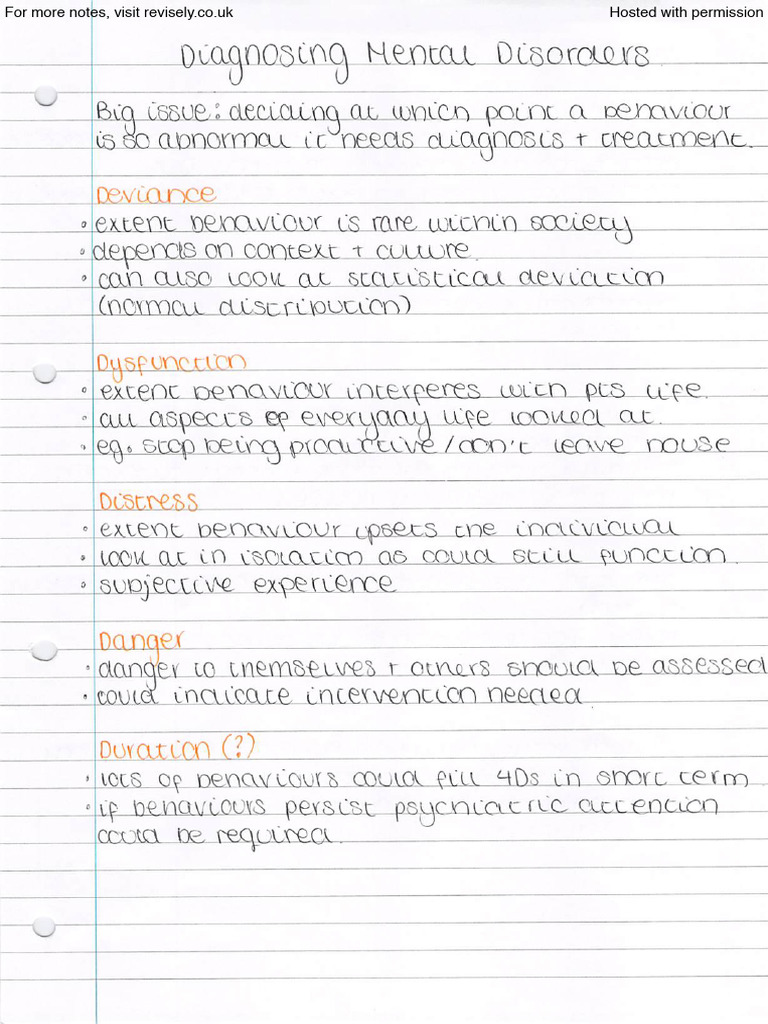 For more notes, visit revisely.co.uk
Hosted with permission
Diagnosing Mental Disorders
Big issue: deciding at which point a behaviour
is so abnormal it needs diagnosis + treatment.
Deviance
• extent behaviour is rare within society
• depends on context + culture.
• can also look at statistical deviation
(normal distribution)
Dysfunction
• extent behaviour interferes with pts life.
• all aspects of everyday life looked at.
• eg. stop being productive/don't leave house
Distress
• extent behaviour upsets the individual
• look at in isolation as could still function.
• subjective experience
Danger
• danger to themselves + others should be assessed
• could indicate intervention needed.
Duration (?)
• lots of behaviours could fill 4Ds in short term
• if behaviours persist psychiatric attention
could be required.